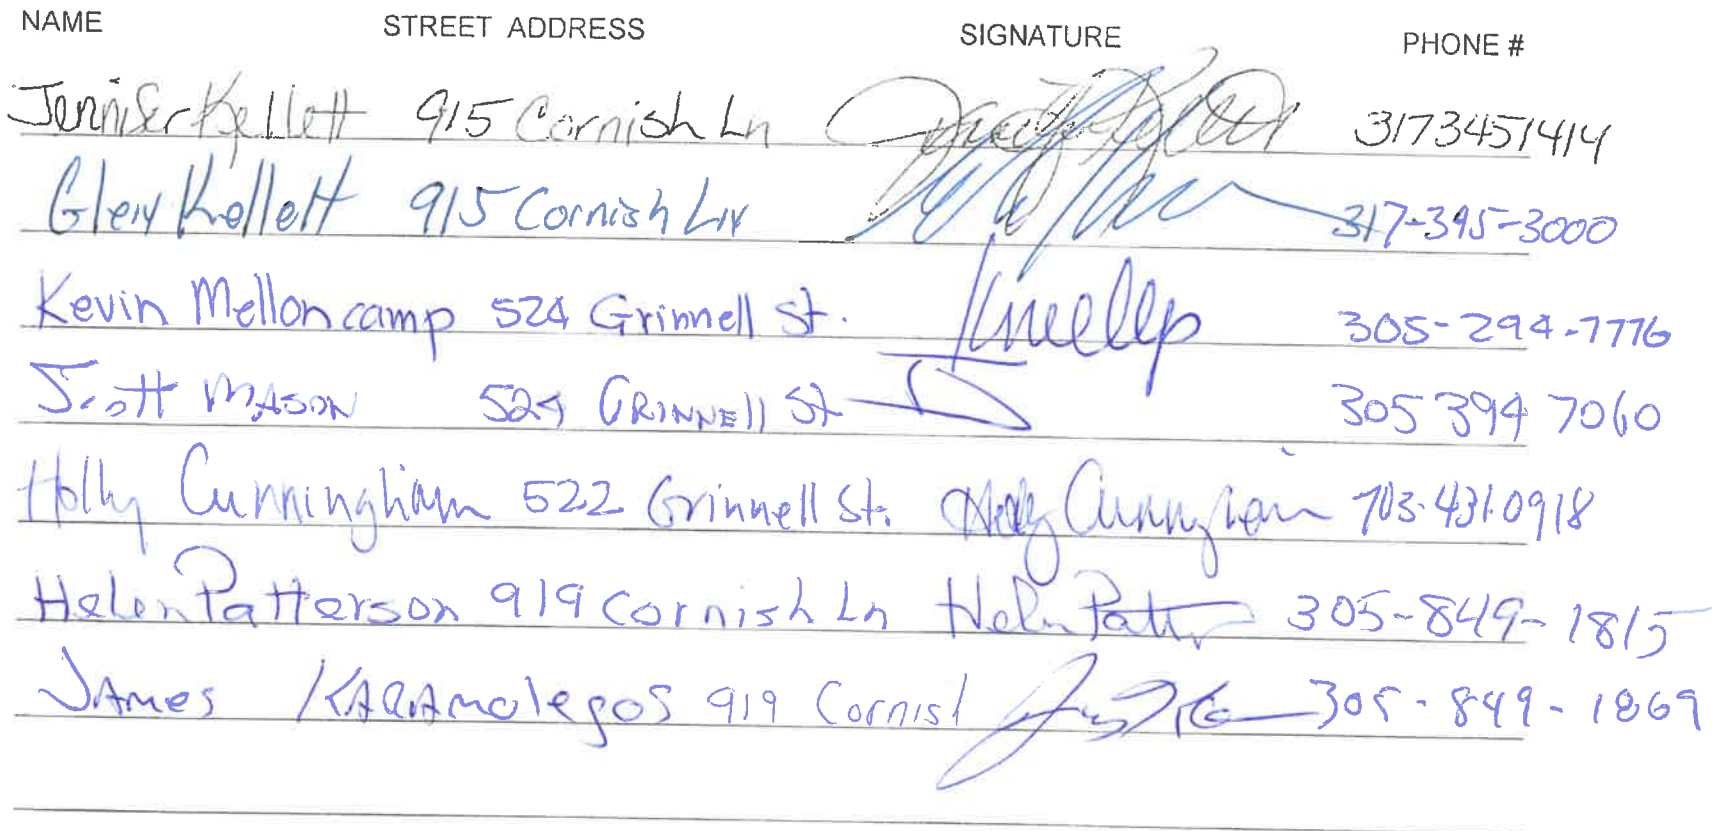 NAME STREET ADDRESS SIGNATURE PHONE #
Jennifer Kellett 915 Cornish Ln 3173451414
Glen Kellett 915 Cornish Ln 317-395-3000
Kevin Melloncamp 524 Grinnell St. 305-294-7776
Scott MASON 524 GRINNEll St 305 394 7060
Holly Cunningham 522 Grinnell St. Holly Cunningham 703.431.0918
Helen Patterson 919 Cornish Ln Helen Patt 305-849-1815
JAmes KARAmolegos 919 Cornish 305-849-1869